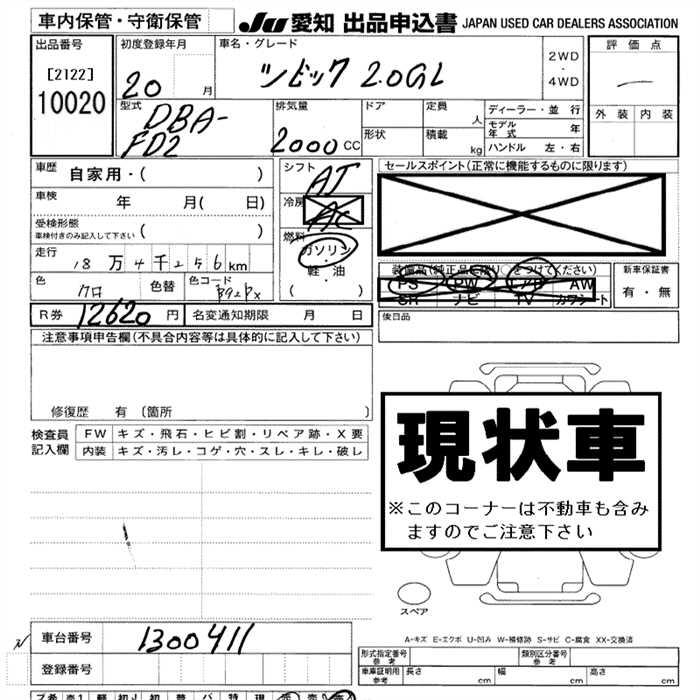 車内保管・守衛保管
JU 愛知 出品申込書 JAPAN USED CAR DEALERS ASSOCIATION
出品番号
[2122]
10020
初度登録年月
20 月
車名・グレード
シビック 2.0GL
2WD
・
4WD
評価点
外装 内装
型式
DBA-
FD2
排気量
2000 CC
ドア
形状
定員 人
積載 kg
ディーラー・並行
モデル年式 年
ハンドル 左・右
車歴 自家用・( )
車検 年 月( 日)
受検形態
車検付きのみ記入して下さい ( )
走行
18万4千256km
色 クロ 色替 色コード B92PX
シフト AT
冷房 AC
燃料
ガソリン
軽・油
( )
セールスポイント(正常に機能するものに限ります)
装備品(純正品に限り○をつけてください)
PS PW エアB AW
SR ナビ TV カワシート
新車保証書
有・無
後日品
R券 12620 円 名変通知期限 月 日
注意事項申告欄(不具合内容等は具体的に記入して下さい)
修復歴 有 〔箇所 〕
検査員
記入欄
FW キズ・飛石・ヒビ割・リペア跡・X要
内装 キズ・汚レ・コゲ・穴・スレ・キレ・破レ
現状車
※このコーナーは不動車も含み
ますのでご注意下さい
スペア
A-キズ E-エクボ U-凹み W-補修跡 S-サビ C-腐食 XX-交換済
車台番号 1300411
登録番号
型式指定番号
参考
類別区分番号
参考
車庫証明用
参考
長さ cm 幅 cm 高さ cm